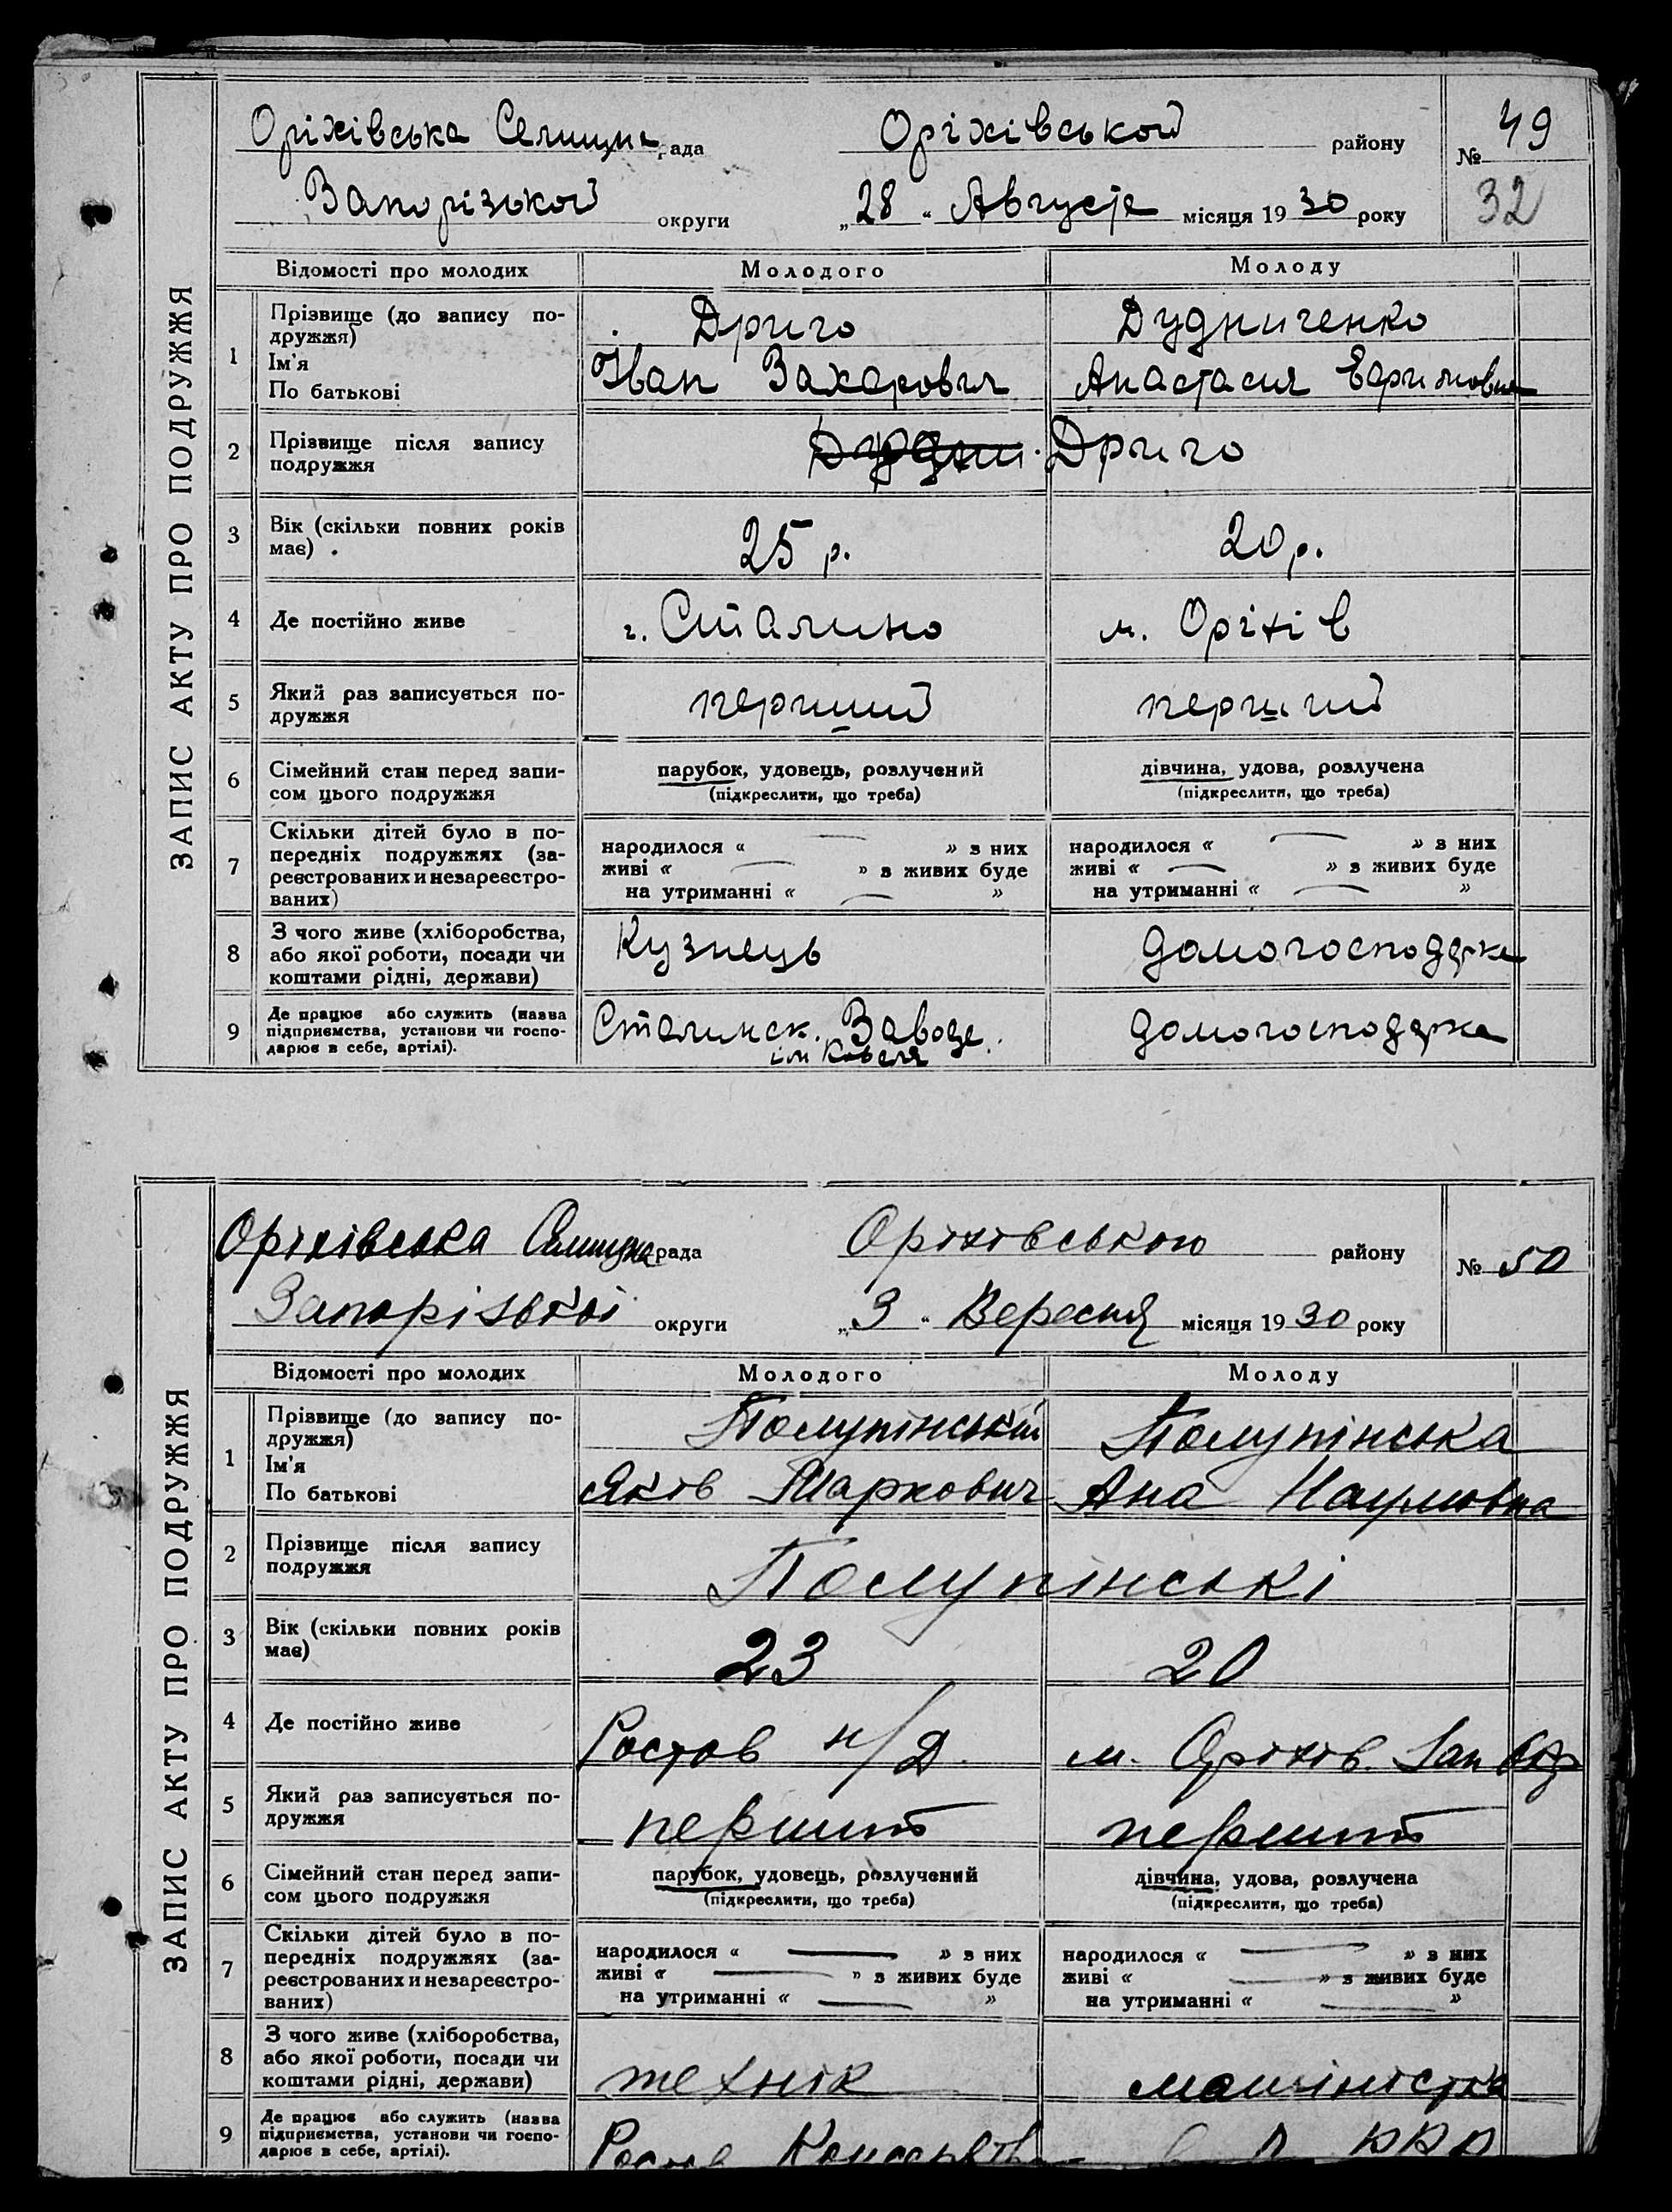 ЗАПИС АКТУ ПРО ПОДРУЖЖЯ
Оріхівська Селищна рада Оріхівськой району № 49
Запорізькой округи „28" Августа місяця 1930 року 32
Відомості про молодих Молодого Молоду
1 Прізвище (до запису по-
дружжя) Дриго Дудниченко
Ім'я
По батькові Іван Захарович Анастасия
2 Прізвище після запису
подружжя Дудни Дриго
3 Вік (скільки повних років
має) 25 р. 20 р.
4 Де постійно живе г. Сталино м. Оріхів
5 Який раз записується по-
дружжя перший перший
6 Сімейний стан перед запи-
сом цього подружжя
парубок, удовець, розлучений дівчина, удова, розлучена
(підкреслити, що треба) (підкреслити, що треба)
7 Скільки дітей було в по-
передніх подружжях (за-
реєстрованих и незареєстро-
ваних)
народилося « — » з них народилося « — » з них
живі « — » з живих буде живі « — » з живих буде
на утриманні « — » на утриманні « — »
8 З чого живе (хліборобства,
або якої роботи, посади чи
коштами рідні, держави)
Кузнець домогосподарка
9 Де працює або служить (назва
підприємства, установи чи госпо-
дарює в себе, артілі).
Сталинск. Заводе домогосподарка
ЗАПИС АКТУ ПРО ПОДРУЖЖЯ
Оріхівська Селищна рада Оріхівського району № 50
Запорізької округи „3" Вересня місяця 1930 року
Відомості про молодих Молодого Молоду
1 Прізвище (до запису по-
дружжя) Полупінський Полупінська
Ім'я
По батькові Яків Маркович Ана Наумовна
2 Прізвище після запису
подружжя Полупінські
3 Вік (скільки повних років
має) 23 20
4 Де постійно живе Ростов н/Д. м. Оріхів. Зап
5 Який раз записується по-
дружжя перший перший
6 Сімейний стан перед запи-
сом цього подружжя
парубок, удовець, розлучений дівчина, удова, розлучена
(підкреслити, що треба) (підкреслити, що треба)
7 Скільки дітей було в по-
передніх подружжях (за-
реєстрованих и незареєстро-
ваних)
народилося « — » з них народилося « — » з них
живі « — » з живих буде живі « — » з живих буде
на утриманні « — » на утриманні « — »
8 З чого живе (хліборобства,
або якої роботи, посади чи
коштами рідні, держави)
технік машіністка
9 Де працює або служить (назва
підприємства, установи чи госпо-
дарює в себе, артілі).